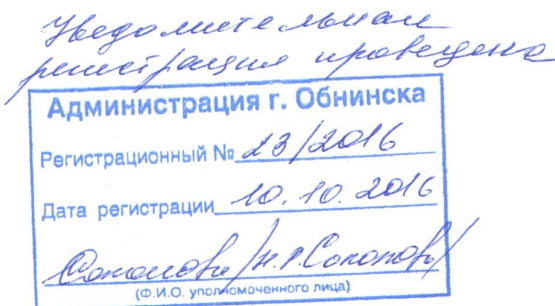 Уведомительная
регистрация проведена
Администрация г. Обнинска
Регистрационный № 23/2016
Дата регистрации 10.10.2016
(Ф.И.О. уполномоченного лица)